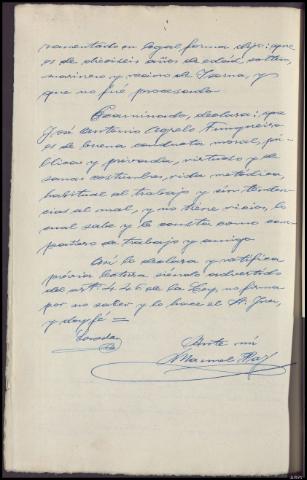 ramentado en legal forma dijo: que
es de dieciseis años de edad, soltero,
marinero y vecino de y
que no fué procesado
Examinado, declara: que
José Antonio Agrelo
es de buena conducta moral, pú-
blica y privada, virtuoso y de
sanas costumbres, vida metódica,
habitual al trabajo y sin tenden-
cias al mal, y no tiene vicios, lo
cual sabe y le consta como com-
pañero de trabajo y amigo
Así lo declara y ratifica
prévia lectura siendo advertido
del artº 446 de la Ley, no firma
por no saber y lo hace el Sr. Juez,
y doy fé =
Losada
Ante mi
Manuel Paz